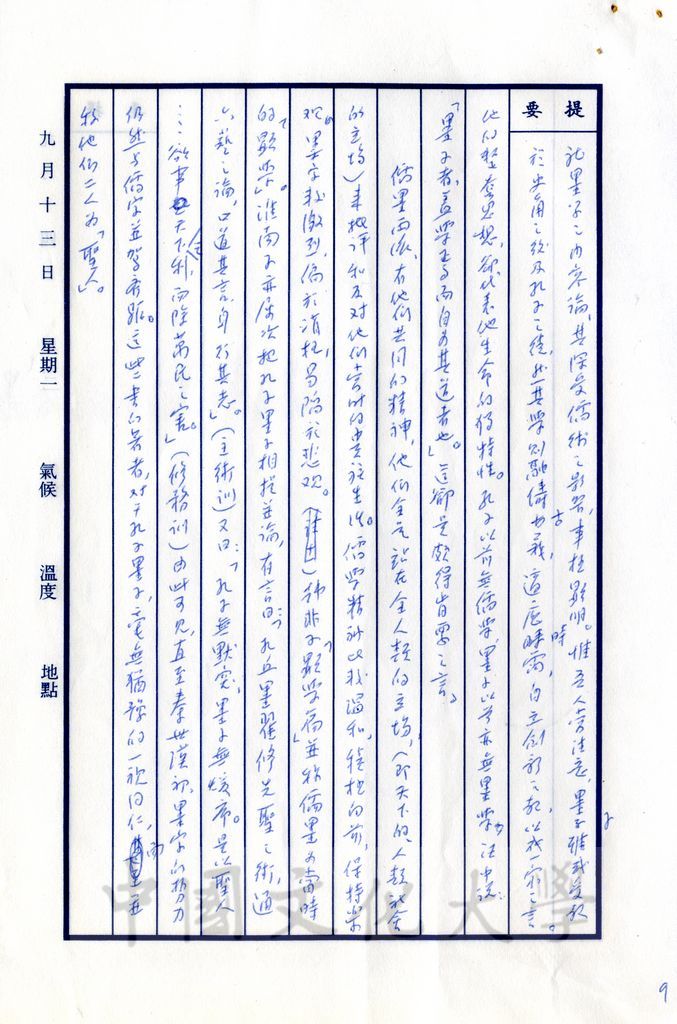 提要
就墨學之內容論,其深受儒術之影響,事極顯明。惟吾人當注意,墨子雖或受教
於史角之後及孔子之徒,然其學則融儔古義,適應時需,自立創新之教,以成一家之言。
他的整套思想,卻代表他生命的獨特性。孔子以前無儒學,墨子以前亦無墨學,汪中說:
「墨子者,蓋學焉而自為其道者也」。這卻是頗得肯要之言。
儒墨兩派,有他們共同的精神,他們全是站在全人類的立場,(即天下的,人類社會
的立場)來批評和反對他們當時的貴族生活。儒學精神比較溫和,積極的前,保持樂
觀。墨家較激烈,偏於消極,易陷於悲觀。韓非子「顯學篇」並稱儒墨為當時
的「顯學」。淮南子亦屢次把孔子墨子相提並論,有言曰:「孔丘墨翟修先聖之術,通
六藝之論,口道其言,身行其志。」(主術訓)又曰:「孔子無黙突,墨子無煖席。是以聖人
……欲事起天下利,而除萬民之害。」(修務訓)由此可見,直至秦世漢初,墨家的勢力
仍然与儒家並駕齊驅。這些書的著者,對于孔子墨子,毫無猶豫的一視同仁,而並
稱他們二人為「聖人」。
九月十三日 星期一 氣候 溫度 地點
中國文化大學
9